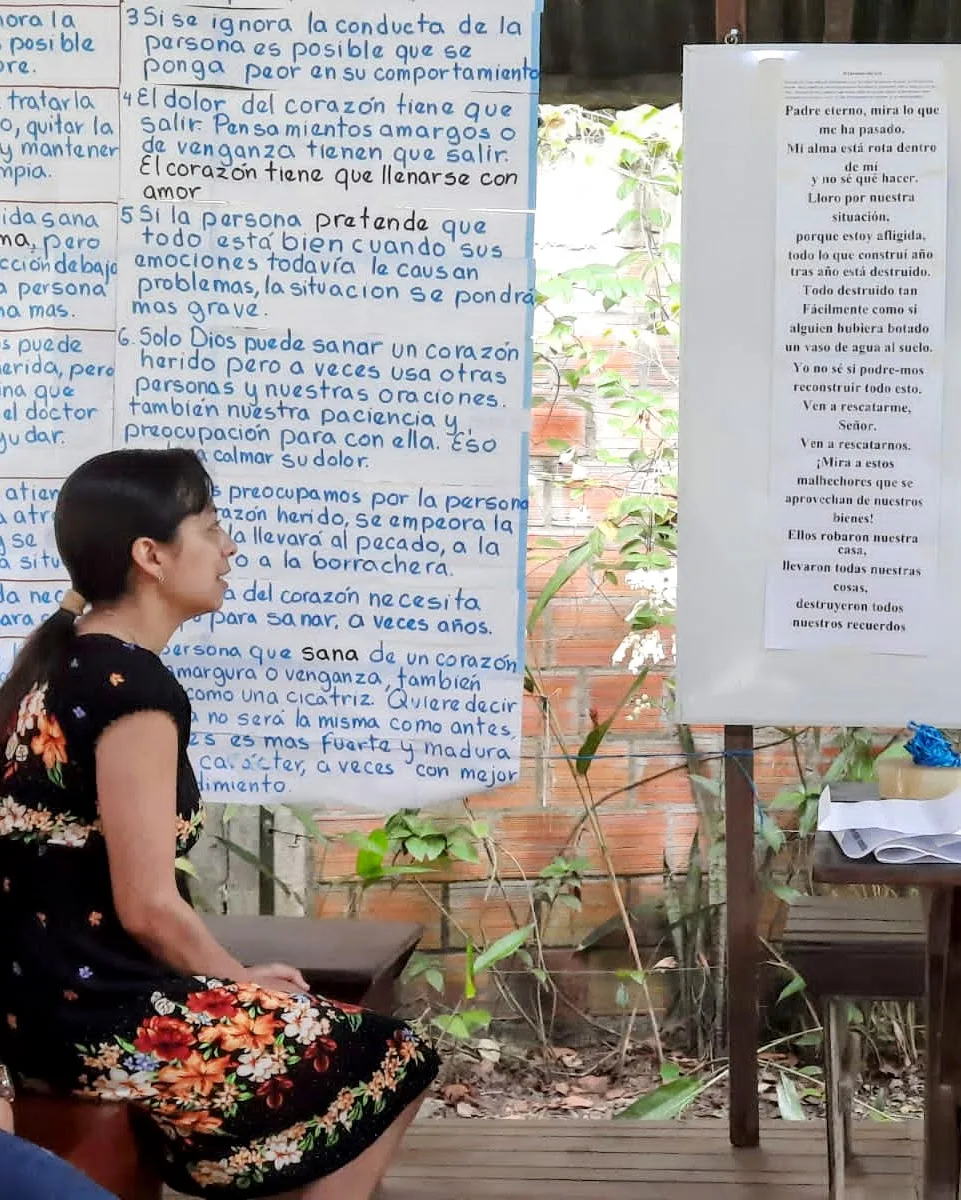 ora la
posible
tratarla
o, quitar la
y mantener
mpia.
ida sana
ma, pero
cción debajo
a persona
a mas.
s puede
erida, pero
ina que
el doctor
yudar.
atien
a atr
y se
a situ
da nec
ara
3 Si se ignora la conducta de la
persona es posible que se
ponga peor en su comportamiento
4 El dolor del corazón tiene que
salir. Pensamientos amargos o
de venganza tienen que salir.
El corazón tiene que llenarse con
amor
5 Si la persona pretende que
todo está bien cuando sus
emociones todavía le causan
problemas, la situacion se pondrá
mas grave.
6. Solo Dios puede sanar un corazón
herido pero a veces usa otras
personas y nuestras oraciones.
también nuestra paciencia y
preocupación para con ella. Eso
a calmar su dolor.
s preocupamos por la persona
azón herido, se empeora la
la llevará al pecado, a la
o a la borrachera.
a del corazón necesita
para sanar, a veces años.
ersona que sana de un corazón
amargura o venganza, también
como una cicatriz. Quiere decir
a no será la misma como antes,
es es mas fuerte y madura
carácter, a veces con mejor
dimiento.
Padre eterno, mira lo que
me ha pasado.
Mi alma está rota dentro
de mí
y no sé qué hacer.
Lloro por nuestra
situación,
porque estoy afligida,
todo lo que construí año
tras año está destruido.
Todo destruido tan
Fácilmente como si
alguien hubiera botado
un vaso de agua al suelo.
Yo no sé si podre-mos
reconstruir todo esto.
Ven a rescatarme,
Señor.
Ven a rescatarnos.
¡Mira a estos
malhechores que se
aprovechan de nuestros
bienes!
Ellos robaron nuestra
casa,
llevaron todas nuestras
cosas,
destruyeron todos
nuestros recuerdos